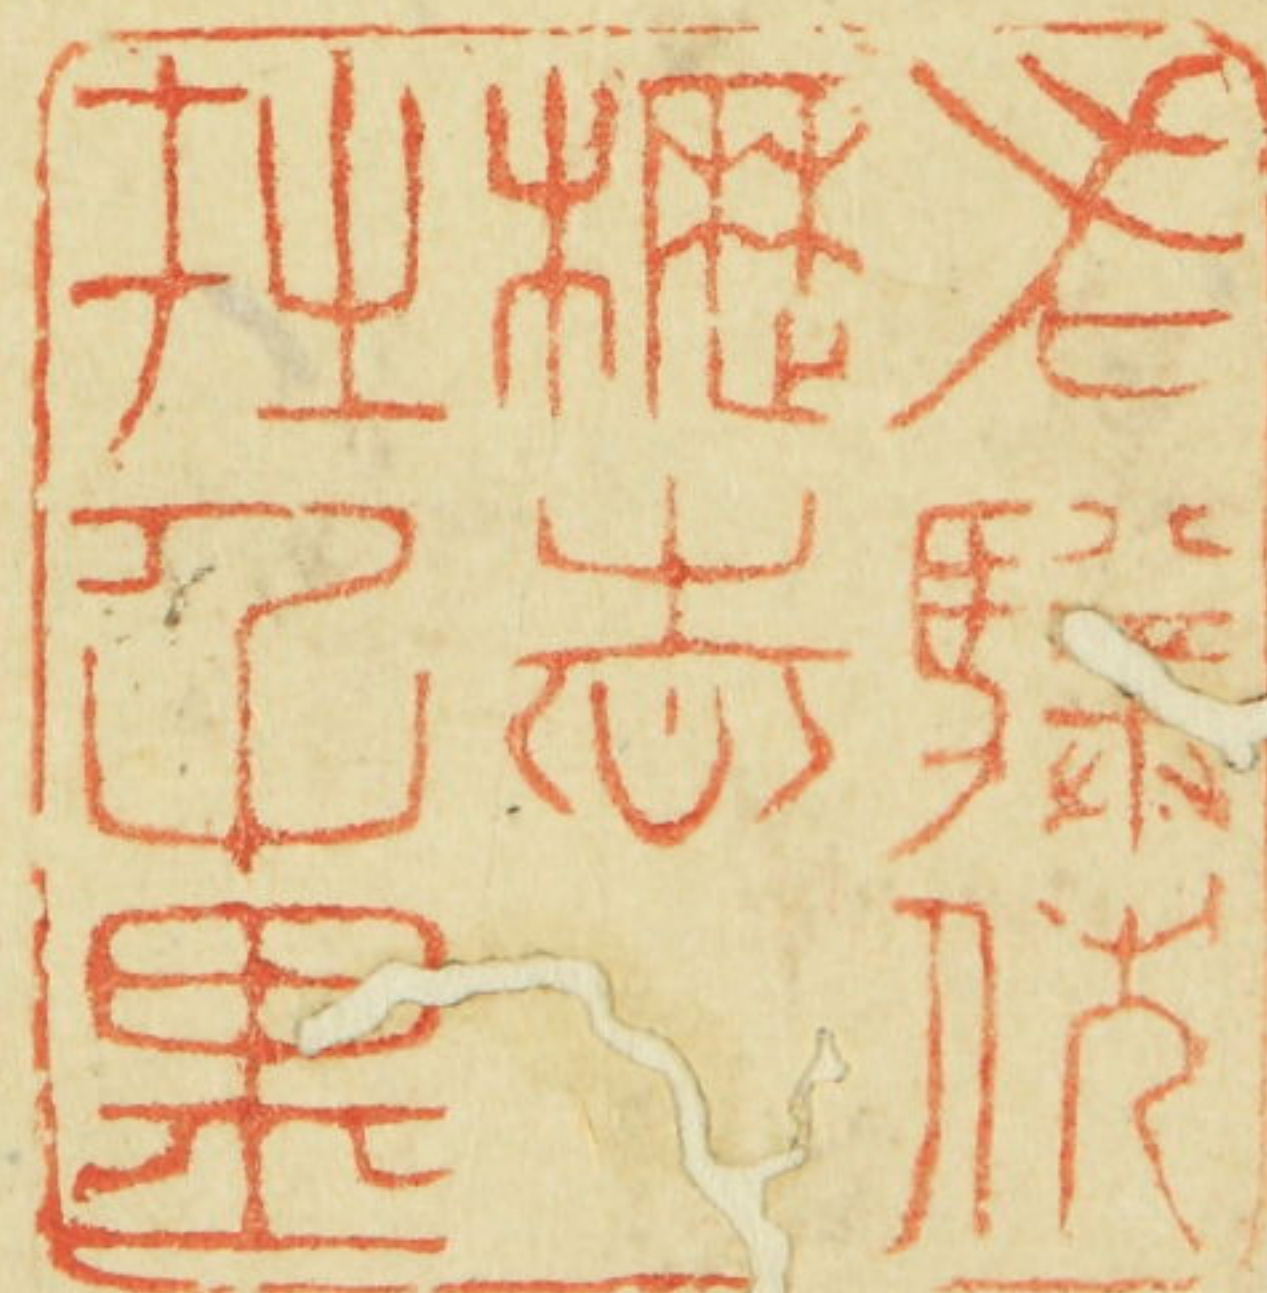 老驥伏
櫪志
在千里